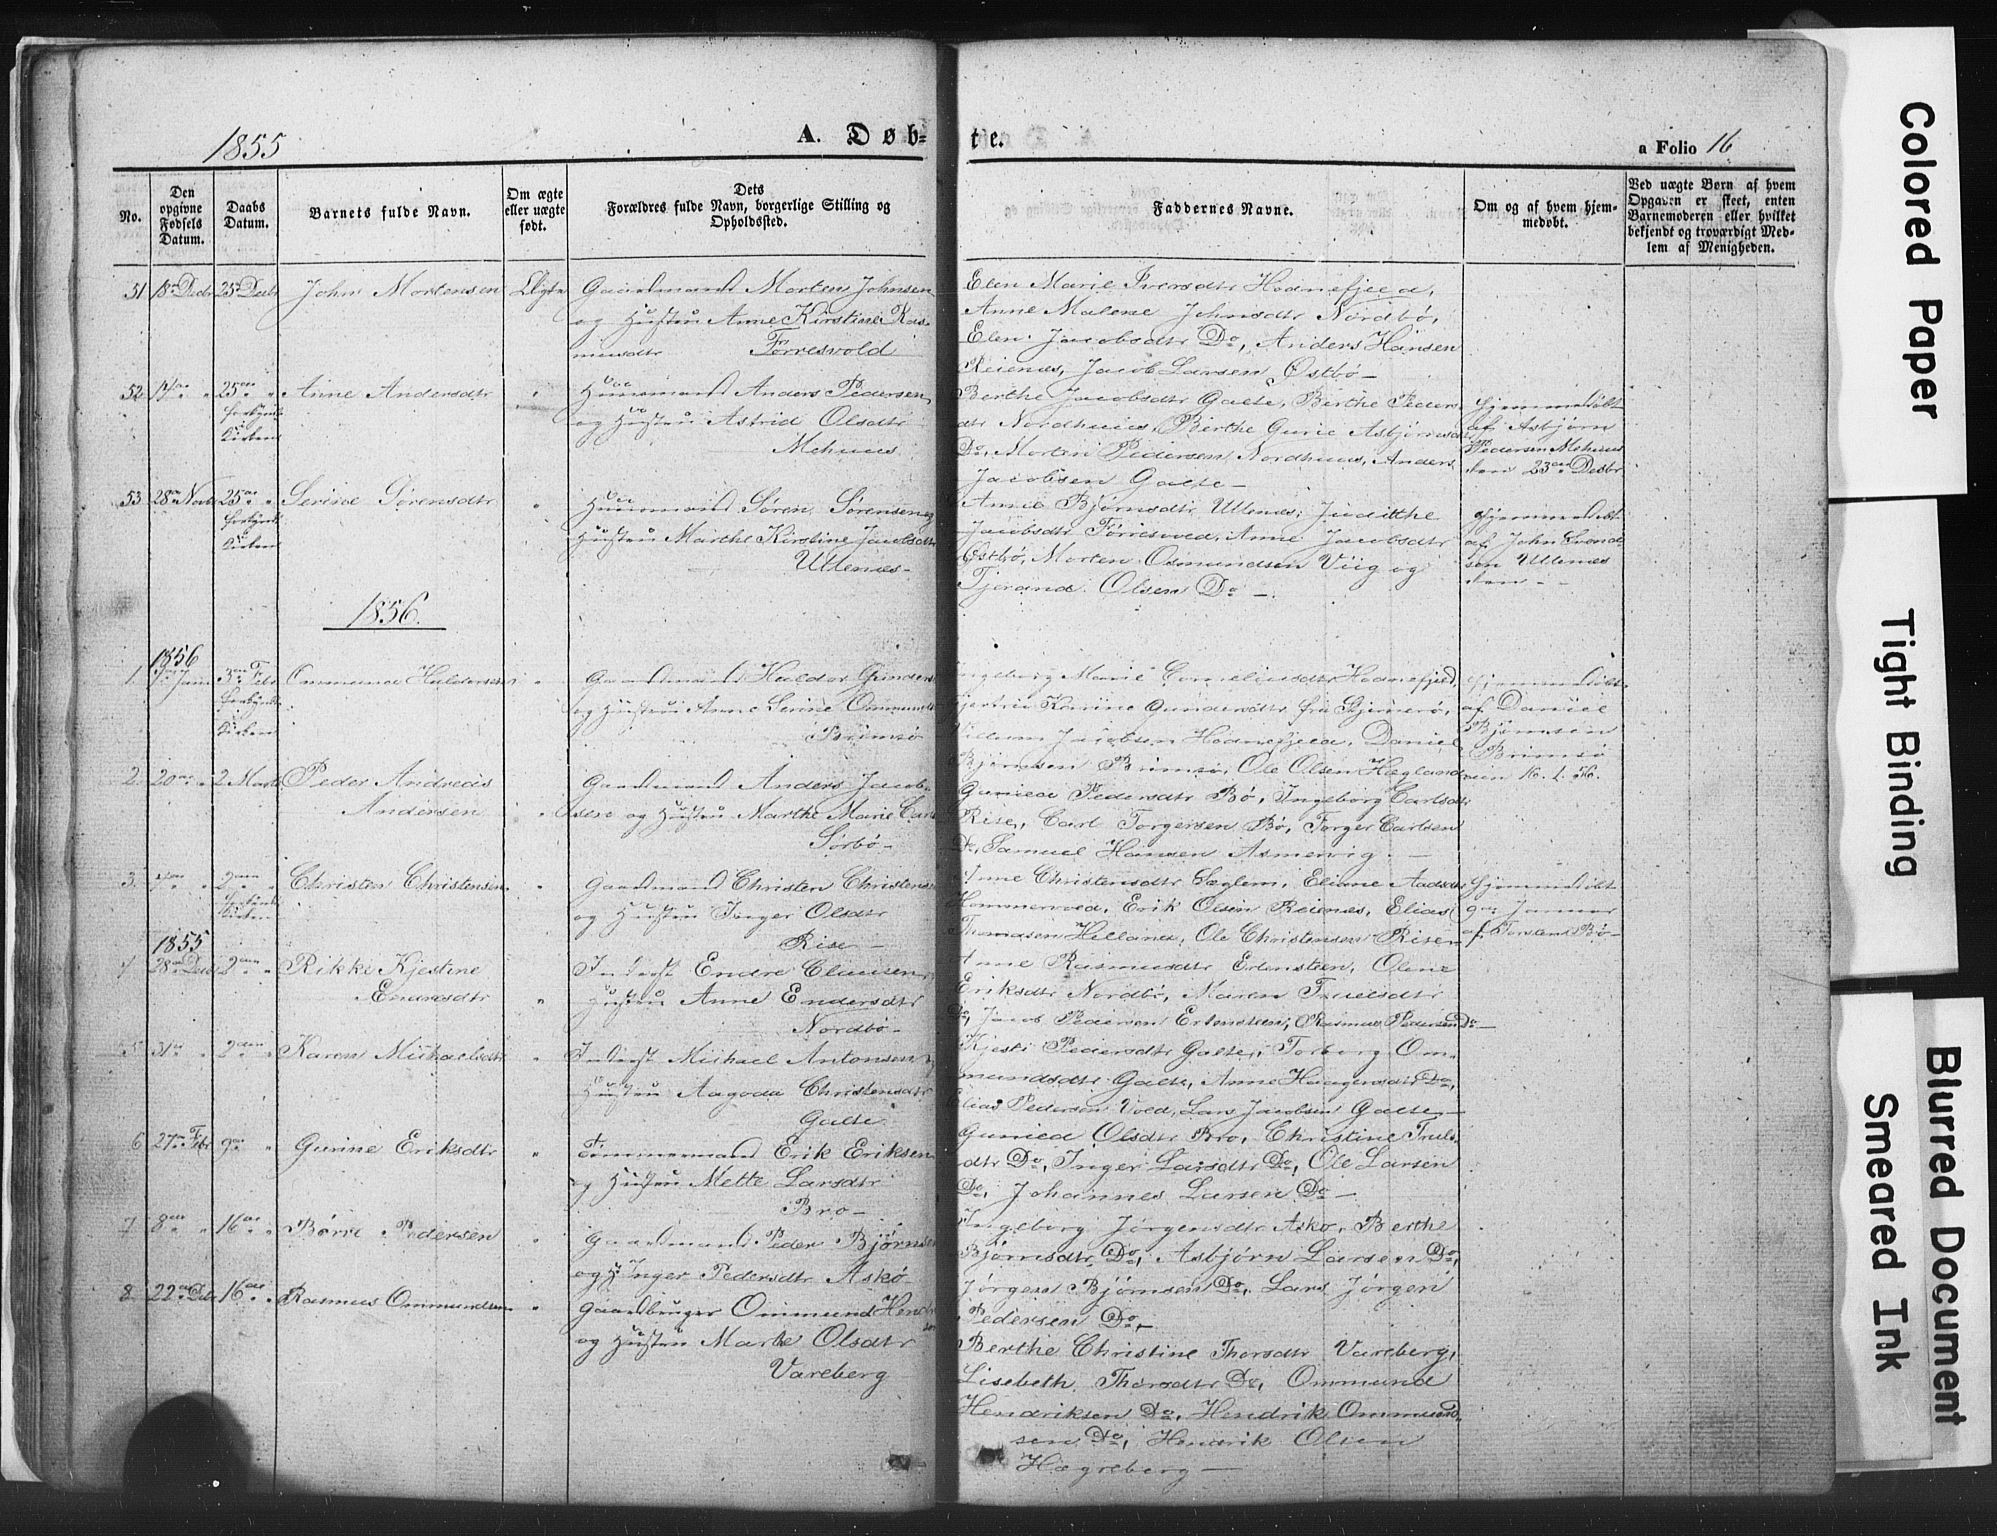 1855
A. Døb-
te.
a Folio 16
No.
Den opgivne Fødsels Datum.
Daabs Datum.
Barnets fulde Navn.
Om ægte eller uægte født.
Dets
Forældres fulde Navn, borgerlige Stilling og
Opholdssted.
Faddernes Navne.
Om og af hvem hjem-
medøbt.
Ved uægte Børn af hvem
Opgaven er skeet, enten
Barnemoderen eller hvilket
bekjendt og troværdigt Med-
lem af Menigheden.
51 18 Decbr 25 Decbr John Mortensen Ægte
Gaardmand Morten Johnsen
og Hustru Anne Kirstine Ras-
musdtr Førresvold
Elen Marie Iversdtr Hodnefjeld,
Anne Malene Johnsdtr Nordbø,
Elen Jacobsdtr Do, Anders Hansen
Reienæs, Jacob Larsen Østbø –
52 25 " Anne Andersdtr "
Huusmand Anders Pedersen
og Hustru Astrid Olsdtr
Mehuus
Berthe Jacobsdtr Galte, Berthe Peders-
dtr Nordhuus, Berthe Gurie Asbjørnsdtr
Do, Morten Pedersen Nordhuus, Anders
Jacobsen Galte –
Hjemmedøbt
af Asbjørn
Pedersen Mehuus
den 23 Decbr
53 28 Novbr 25 " Serine Sørensdtr "
Huusmand Søren Sørensen og
Hustru Marthe Kirstine Jacobsdtr
Utlenæs –
Anne Bjørnsdtr Utlenæs, Judithe
Jacobsdtr Førresvold, Anne Jacobsdtr
Østbø, Morten Osmundsen Viig og
Tjerand Olsen Do –
Hjemmedøbt
af John
Utlenæs
den –
1856.
1856
1. Janu 3 Feb Ommund Haldorsen "
Gaardmand Haldor Gunders
og Hustru Anne Serine Ommunds
Brimsø
Ingeborg Marie Corneliusdtr Hodnefjeld,
Karine Gundersdtr fra
Villum Jacobsen Hodnefjeld, Daniel
Bjørnsen Brimsø, Ole Olsen Hægland
Hjemmedøbt
af Daniel
Bjørnsen
Brimsø
den 16. 1. 56.
2. 20 " 2 Marts Peder Andreas
Andersen "
Gaardmand Anders Jacob-
sen og Hustru Marthe Marie Carls
Sørbø –
Gunild Pedersdtr Bø, Ingeborg Carlsdtr
Rise, Carl Torgersen Bø, Torger Carlsen
Do, Samuel Hansen Asmervig. –
3. " 2 " Christen Christensen "
Gaardmand Christen Christensen
og Hustru Inger Olsdtr
Rise –
Anne Christensdtr Sæglem, Eliane Aadsdtr
Hommervold, Erik Olsen Reienæs, Elias
Thomasen Helland, Ole Christensen Risen
Hjemmedøbt
9 Januar
af Torsten Bø –
1855
4 28 Decb 2 " Rikke Kjestine
Endresdtr "
Inderst Endre Clausen
Hustru Anne Endersdtr
Nordbø –
Anne Rasmusdtr Erlensteen, Olene
Eriksdtr Nordbø, Maren Truelsdtr
Do, Jacob Pedersen Erlensteen, Rasmus Pedersen Do –
5 31 " 2 " Karen Michaelsdtr "
Inderst Michael Antonsen og
Hustru Aagoda Christensdtr
Galte
Kjesti Pedersdtr Galte, Torborg Om-
mundsdtr Galte, Anne Haagensdtr Do,
Elias Pedersen Vold, Lars Jacobsen Galte –
6 27 Febr 9 " Gurine Eriksdtr "
Tømmermand Erik Eriksen
og Hustru Mette Larsdtr
Bro –
Gunild Olsdtr Bro, Christine Truls-
dtr Do, Inger Larsdtr Do, Ole Larsen
Do, Johannes Larsen Do –
7 8 " 16 " Børre Pedersen "
Gaardmand Peder Bjørnsen
og H. Inger Pedersdtr Askø –
Ingeborg Jørgensdtr Askø, Berthe
Bjørnsdtr Do, Asbjørn Larsen Do,
Jørgen Bjørnsen Do, Lars Jørgen
Pedersen Do, –
8 22 16 " Rasmus Ommundsen "
Gaardbruger Ommund Hendrik
sen
og Hustru Marte Olsdtr
Vareberg
Berthe Christine Thorsdtr Vareberg,
Lisebeth Thorsdtr Do, Ommund
Hendriksen Do, Hendrik Ommund-
sen Do, Hendrik Olsen
Hægreberg –
Colored Paper
Tight Binding
Blurred Document
Smeared Ink